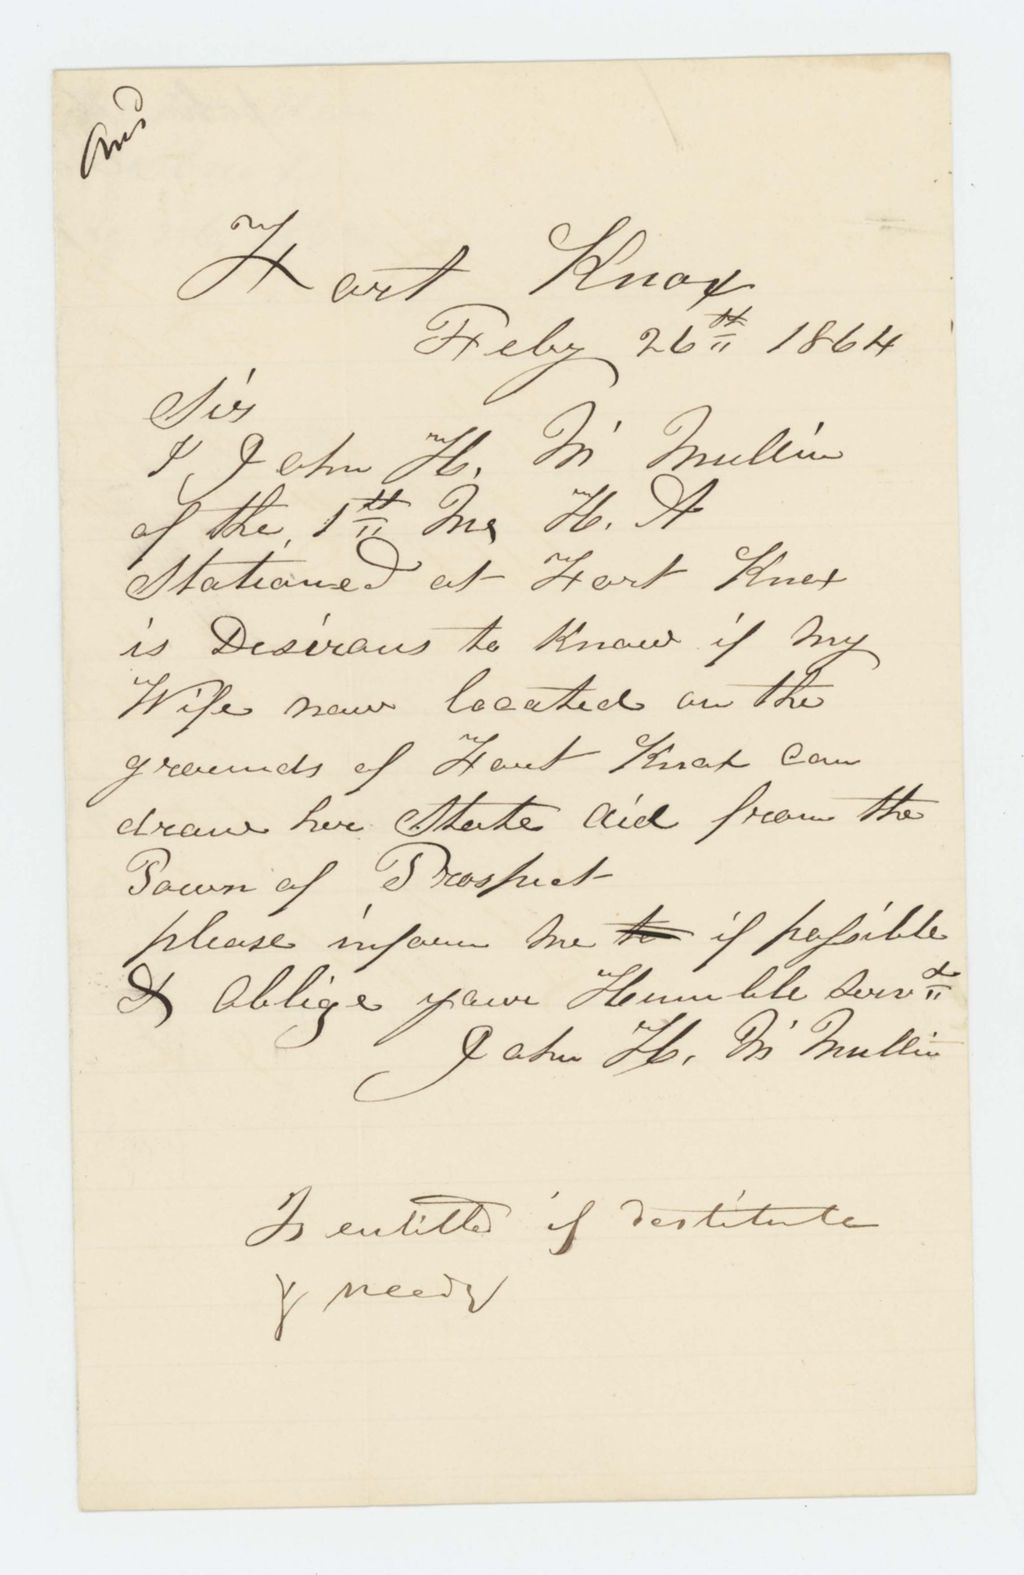 Ansd
Fort Knox
Feby 26th 1864
Sir
I, John H. Mc Mullin
of the, 1st Me H. A
Stationed at Fort Knox
is Desirous to Know if my
Wife now located on the
grounds of Fort Knox can
draw her State aid from the
Town of Prospect
please inform me to if possible
& oblige your Humble servt
John H. Mc Mullin
Is entitled if destitute
& needy